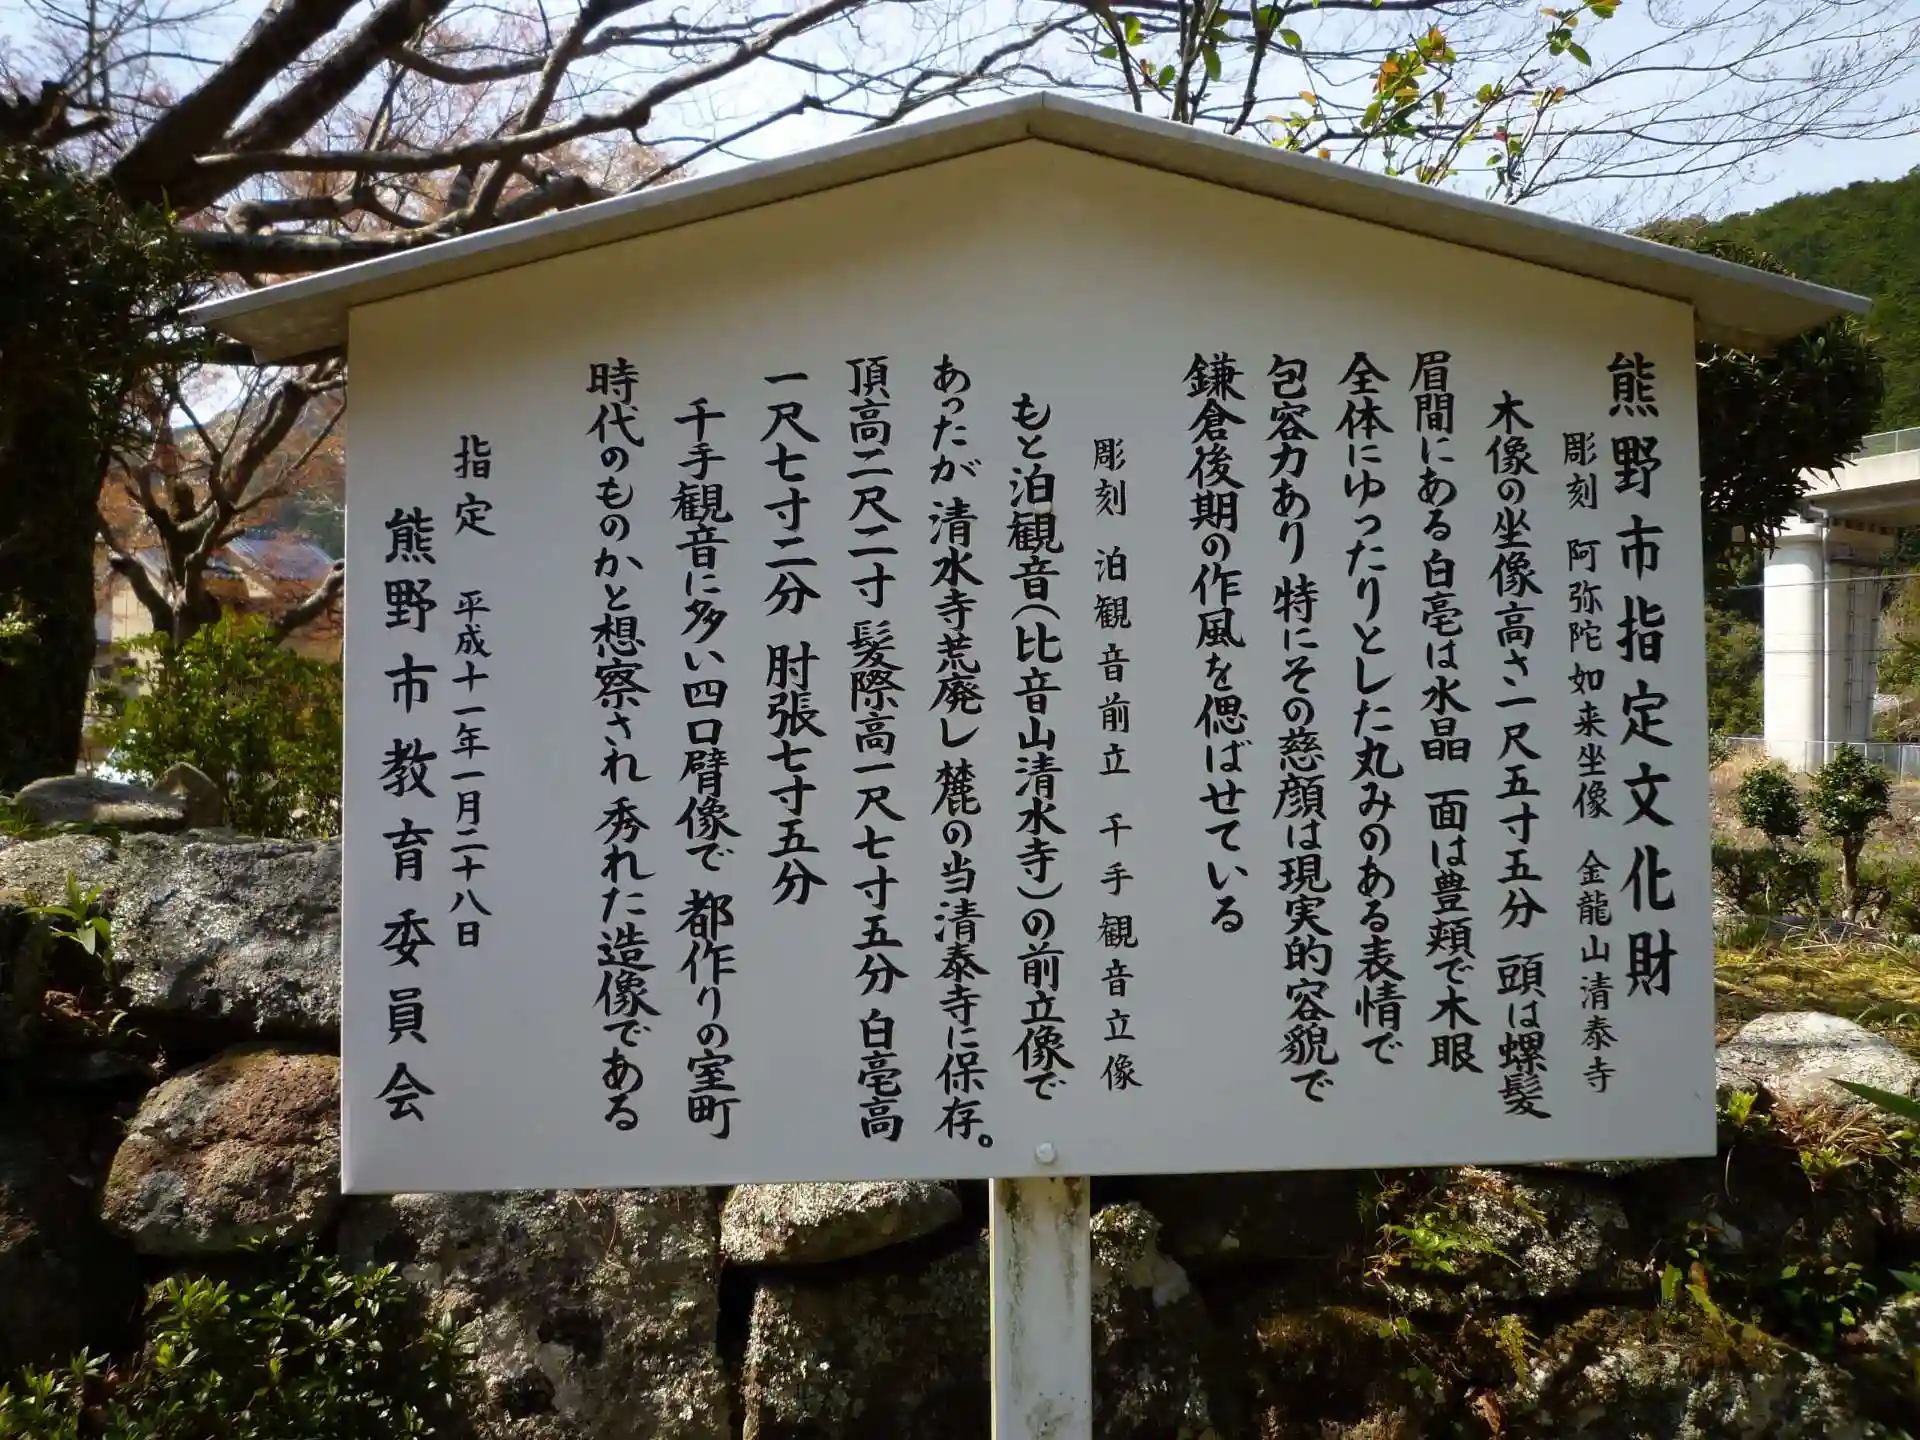 熊野市指定文化財
彫刻 阿弥陀如来坐像 金龍山清泰寺
木像の坐像高さ一尺五寸五分 頭は螺髪
眉間にある白毫は水晶 面は豊頬で木眼
全体にゆったりとした丸みのある表情で
包容力あり 特にその慈顔は現実的容貌で
鎌倉後期の作風を偲ばせている
彫刻 泊観音前立 千手観音立像
もと泊観音(比音山清水寺)の前立像で
あったが 清水寺荒廃し 麓の当清泰寺に保存。
頂高二尺二寸 髪際高一尺七寸五分 白毫高
一尺七寸二分 肘張七寸五分
千手観音に多い四口臂像で 都作りの室町
時代のものかと想察され 秀れた造像である
指定 平成十一年一月二十八日
熊野市教育委員会